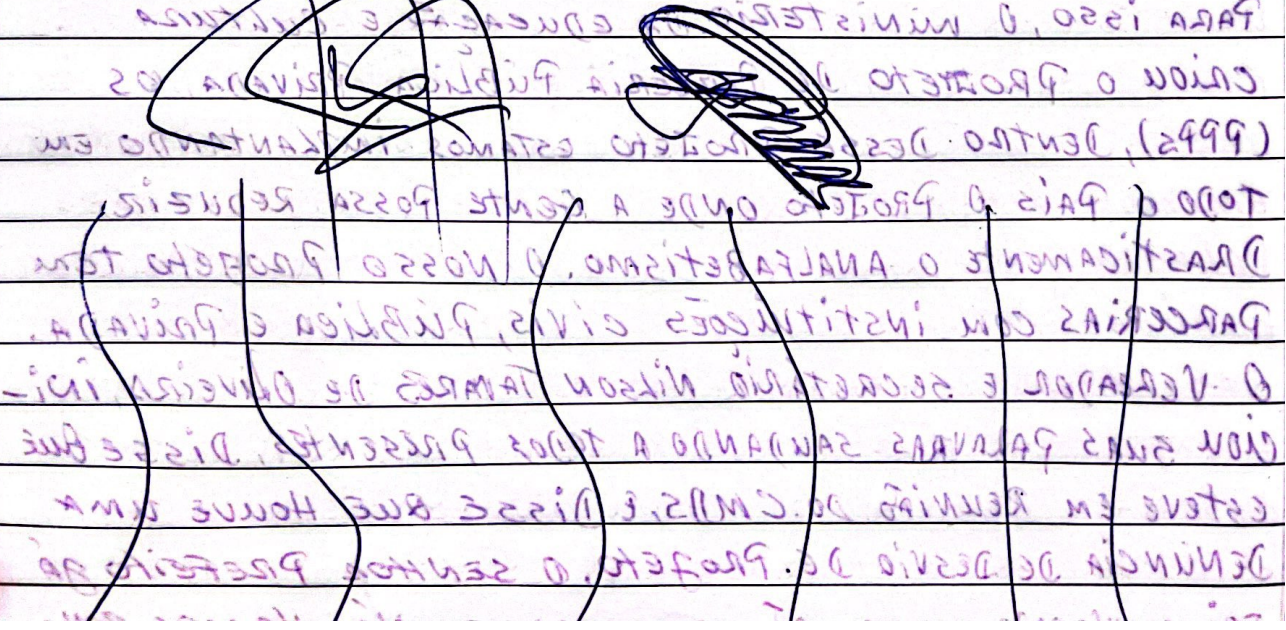 PARA ISSO, O MINISTÉRIO DA EDUCAÇÃO E CULTURA
CRIOU O PROJETO DE PARCERIA PÚBLICA PRIVADA, OS
(PPPs), DENTRO DESSE PROJETO ESTAMOS IMPLANTANDO EM
TODO O PAÍS O PROJETO ONDE A GENTE POSSA REDUZIR
DRASTICAMENTE O ANALFABETISMO. O NOSSO PROJETO TEM
PARCERIAS COM INSTITUIÇÕES CIVIS, PÚBLICA E PRIVADA.
O VEREADOR E SECRETÁRIO NILSON TAVARES DE OLIVEIRA, INI-
CIOU SUAS PALAVRAS SAUDANDO A TODOS PRESENTES, DISSE QUE
ESTEVE EM REUNIÃO DE CMDS, E DISSE QUE HOUVE UMA
DENÚNCIA DE DESVIO DE PROJETO. O SENHOR PREFEITO JÁ